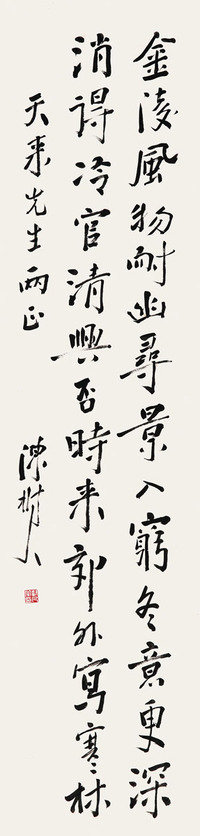 金陵風物耐幽尋景入窮冬意更深
消得冷官清興否時来郊外寫寒林
天来先生兩正
陳樹人